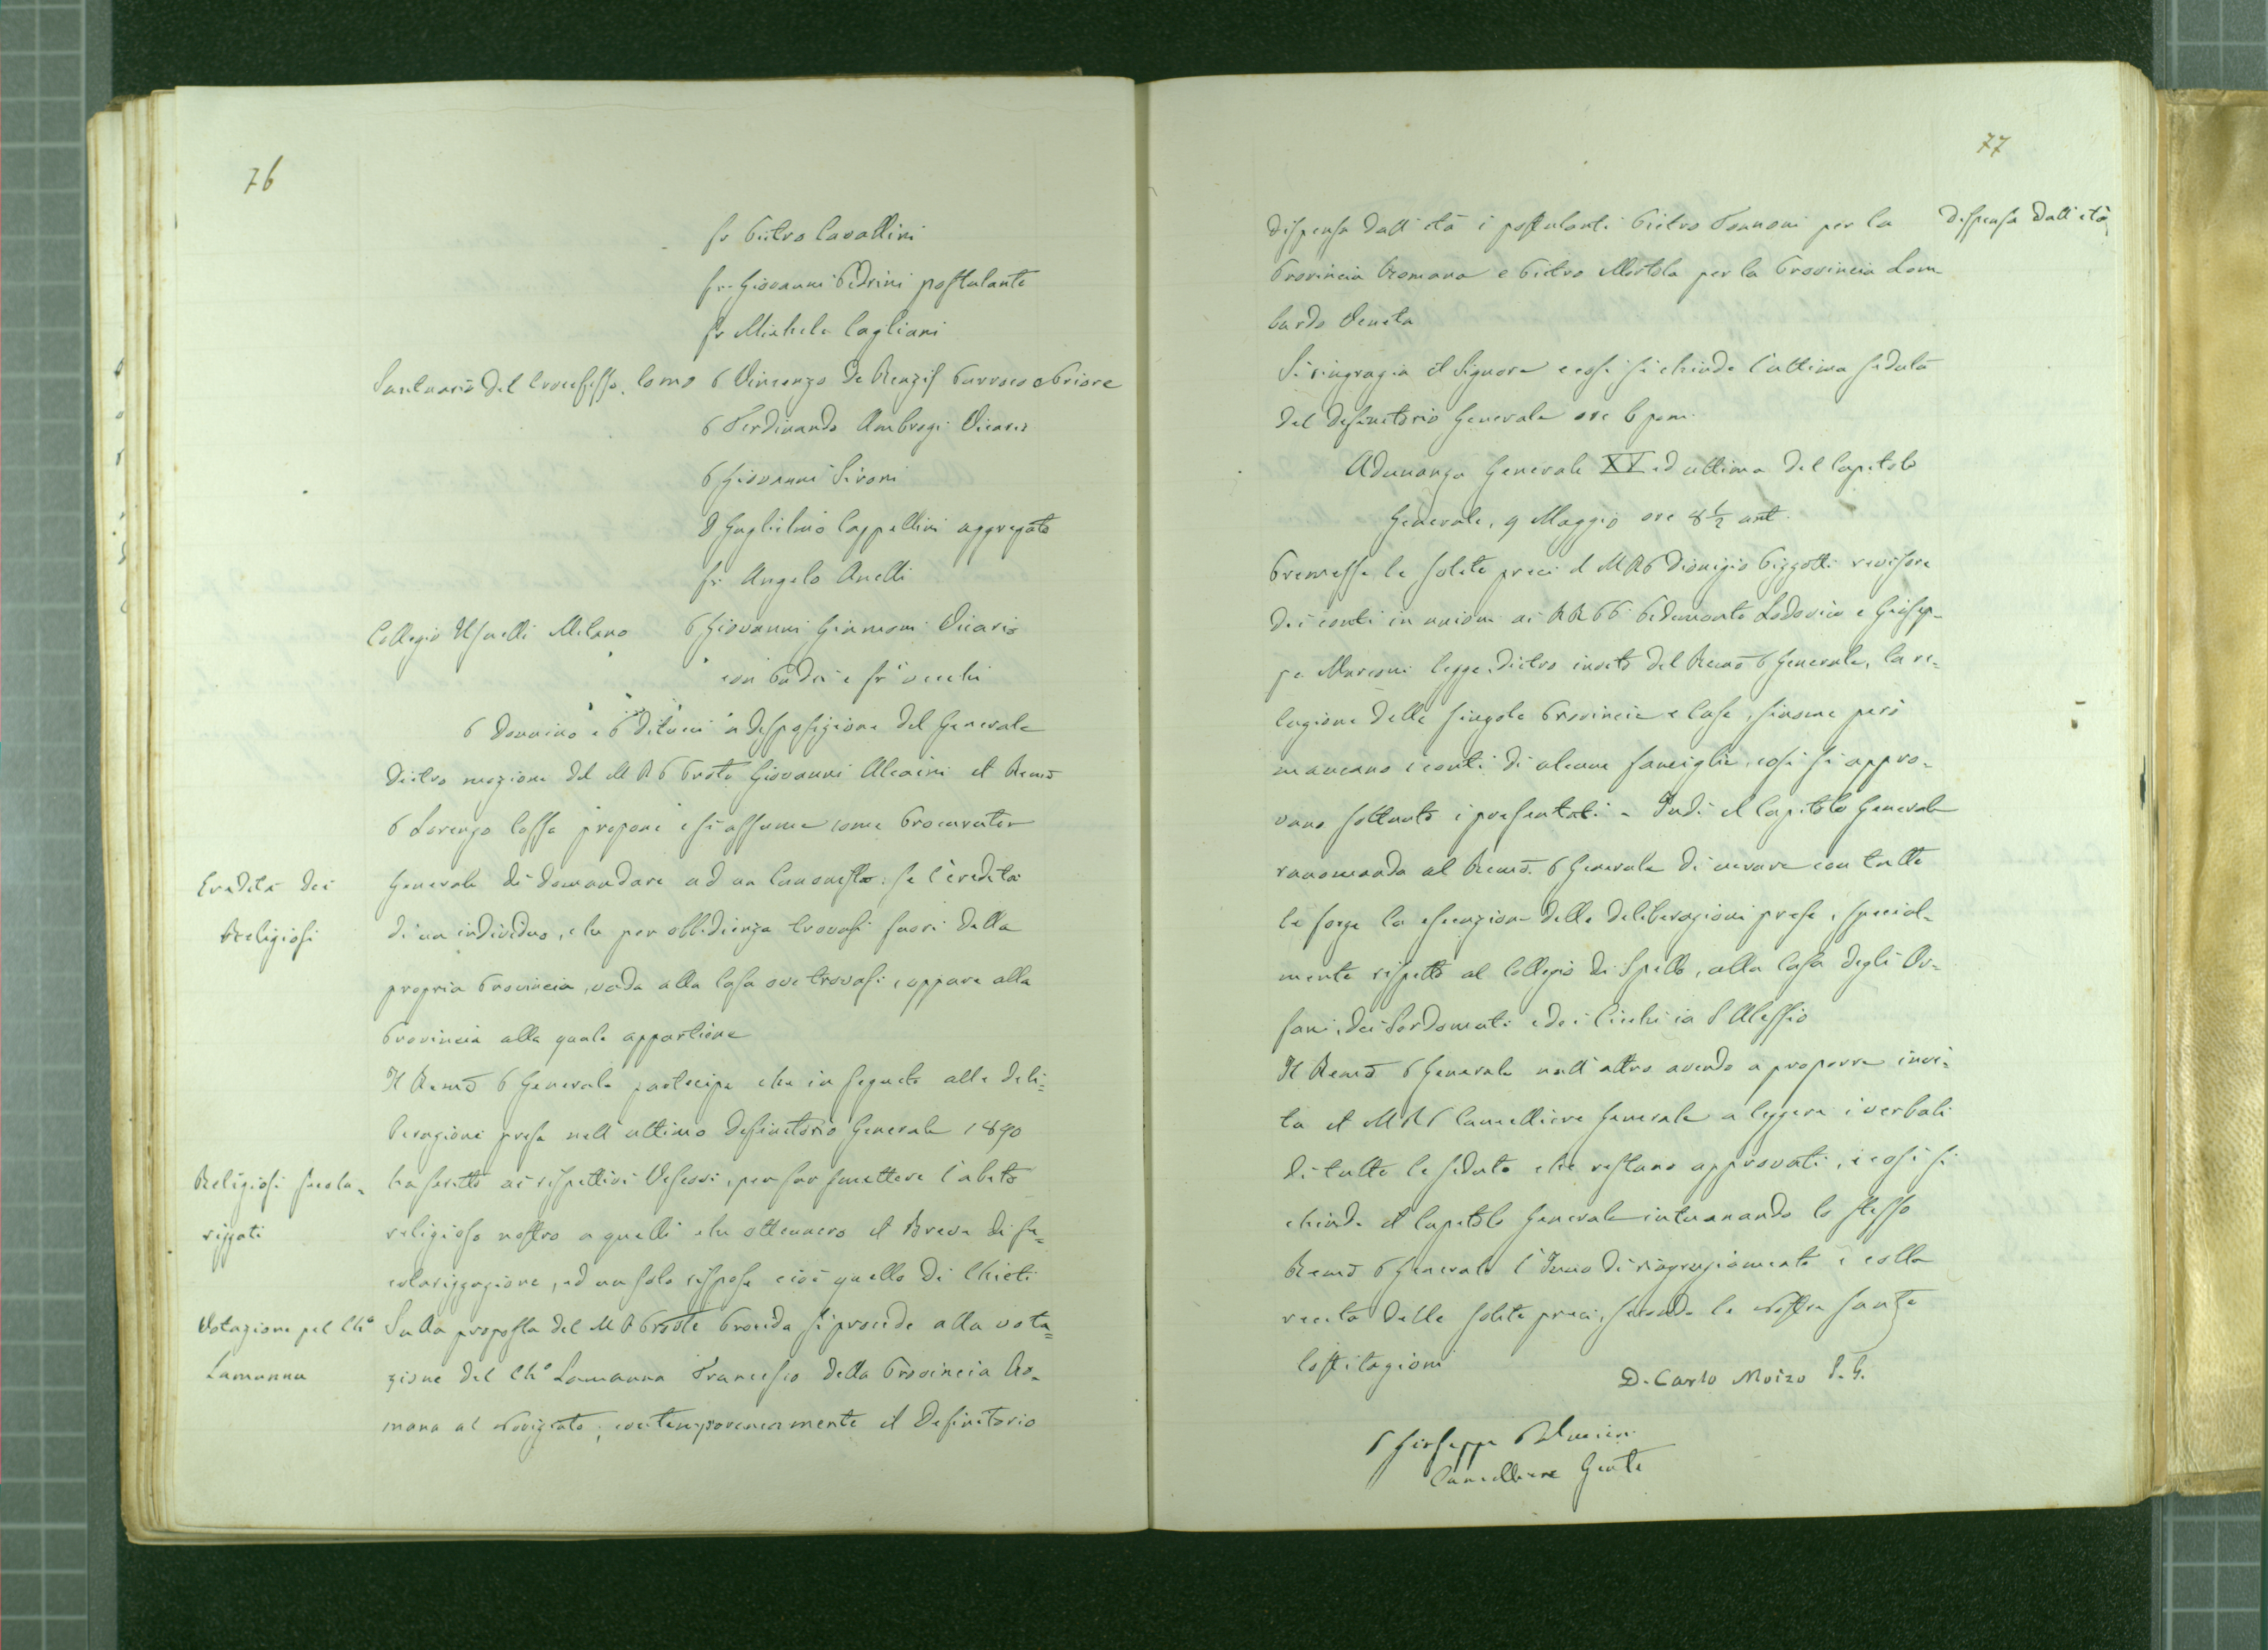 76
fr Pietro Cavallini
fr. Giovanni Pedrini postulante
fr Michele Cagliani
Santuario del Crocefisso. Como P Vincenzo De Renzis Parroco e Priore
P Ferdinando Ambrogi Vicario
P Giovanni Sironi
D Guglielmo Cappellini aggregato
fr Angelo Anelli
Collegio Usuelli Milano P Giovanni Giannoni Vicario
coi Padri e fr vecchi
P Donnino e P a disposizione del Generale
Dietro mozione del M R P Prole Giovanni Alcaini il Remo
P Lorenzo Cossa propone e si assume come Procurator
Eredità dei
Religiosi
Generale di domandare ad un Canonista: se l'eredità
di un individuo, che per obbidienza trovasi fuori della
propria Provincia, vada alla Casa ove trovasi, oppure alla
Provincia alla quale appartiene
Il Remo P Generale partecipa che in seguito alle deli=
berazioni prese nell'ultimo Definitorio Generale 1890
Religiosi secola=
rizzati
ha scritto ai rispettivi Vescovi, per far smettere l'abito
religioso nostro a quelli che ottennero il Breve di se=
colarizzazione, ed un solo rispose cioè quello di Chieti
Votazione pel Cho
Lamanna
Sulla proposta del M R Prole Procida si procede alla vota=
zione del Cho Lamanna Francesco della Provincia Ro=
mana al Noviziato; contemporaneamente il Definitorio
77
dispensa dall'età i postulanti Pietro per la
Dispensa dall'età
Provincia Romana e Pietro Mortola per la Provincia Lom
bardo Veneta
Si ringrazia il Signore e così si chiude l'ultima seduta
del Definitorio Generale ore 6 pom.
Adunanza Generale XV ed ultima del Capitolo
Generale, 9 Maggio ore 8 1/2 ant.
Premesse le solite preci il M R P Dionigio Pizzotti revisore
dei conti in unione ai RR PP Pedemonte Lodovico e Giusep=
pe Marconi legge, dietro invito del Remo P Generale, la re=
lazione delle singole Provincie e Case, siccome però
mancano i conti di alcune famiglie, così si appro=
vano soltanto i presentati - Indi il Capitolo Generale
raccomanda al Remo P Generale di curare con tutte
le forze la esecuzione delle deliberazioni prese, special=
mente rispetto al Collegio di Spello, alla Casa degli Or=
fani, dei Sordomuti e dei Ciechi in S Alessio
Il Remo P Generale null'altro avendo a proporre invi=
ta il M R P Cancelliere Generale a leggere i verbali
di tutte le sedute che restano approvati, e così si
chiude il Capitolo Generale intuonando lo stesso
Remo P Generale l'Inno di ringraziamento e colla
recita delle solite preci, secondo le nostre sante
Costituzioni
D. Carlo Moizo P. G.
P Giuseppe
Cancelliere Genle